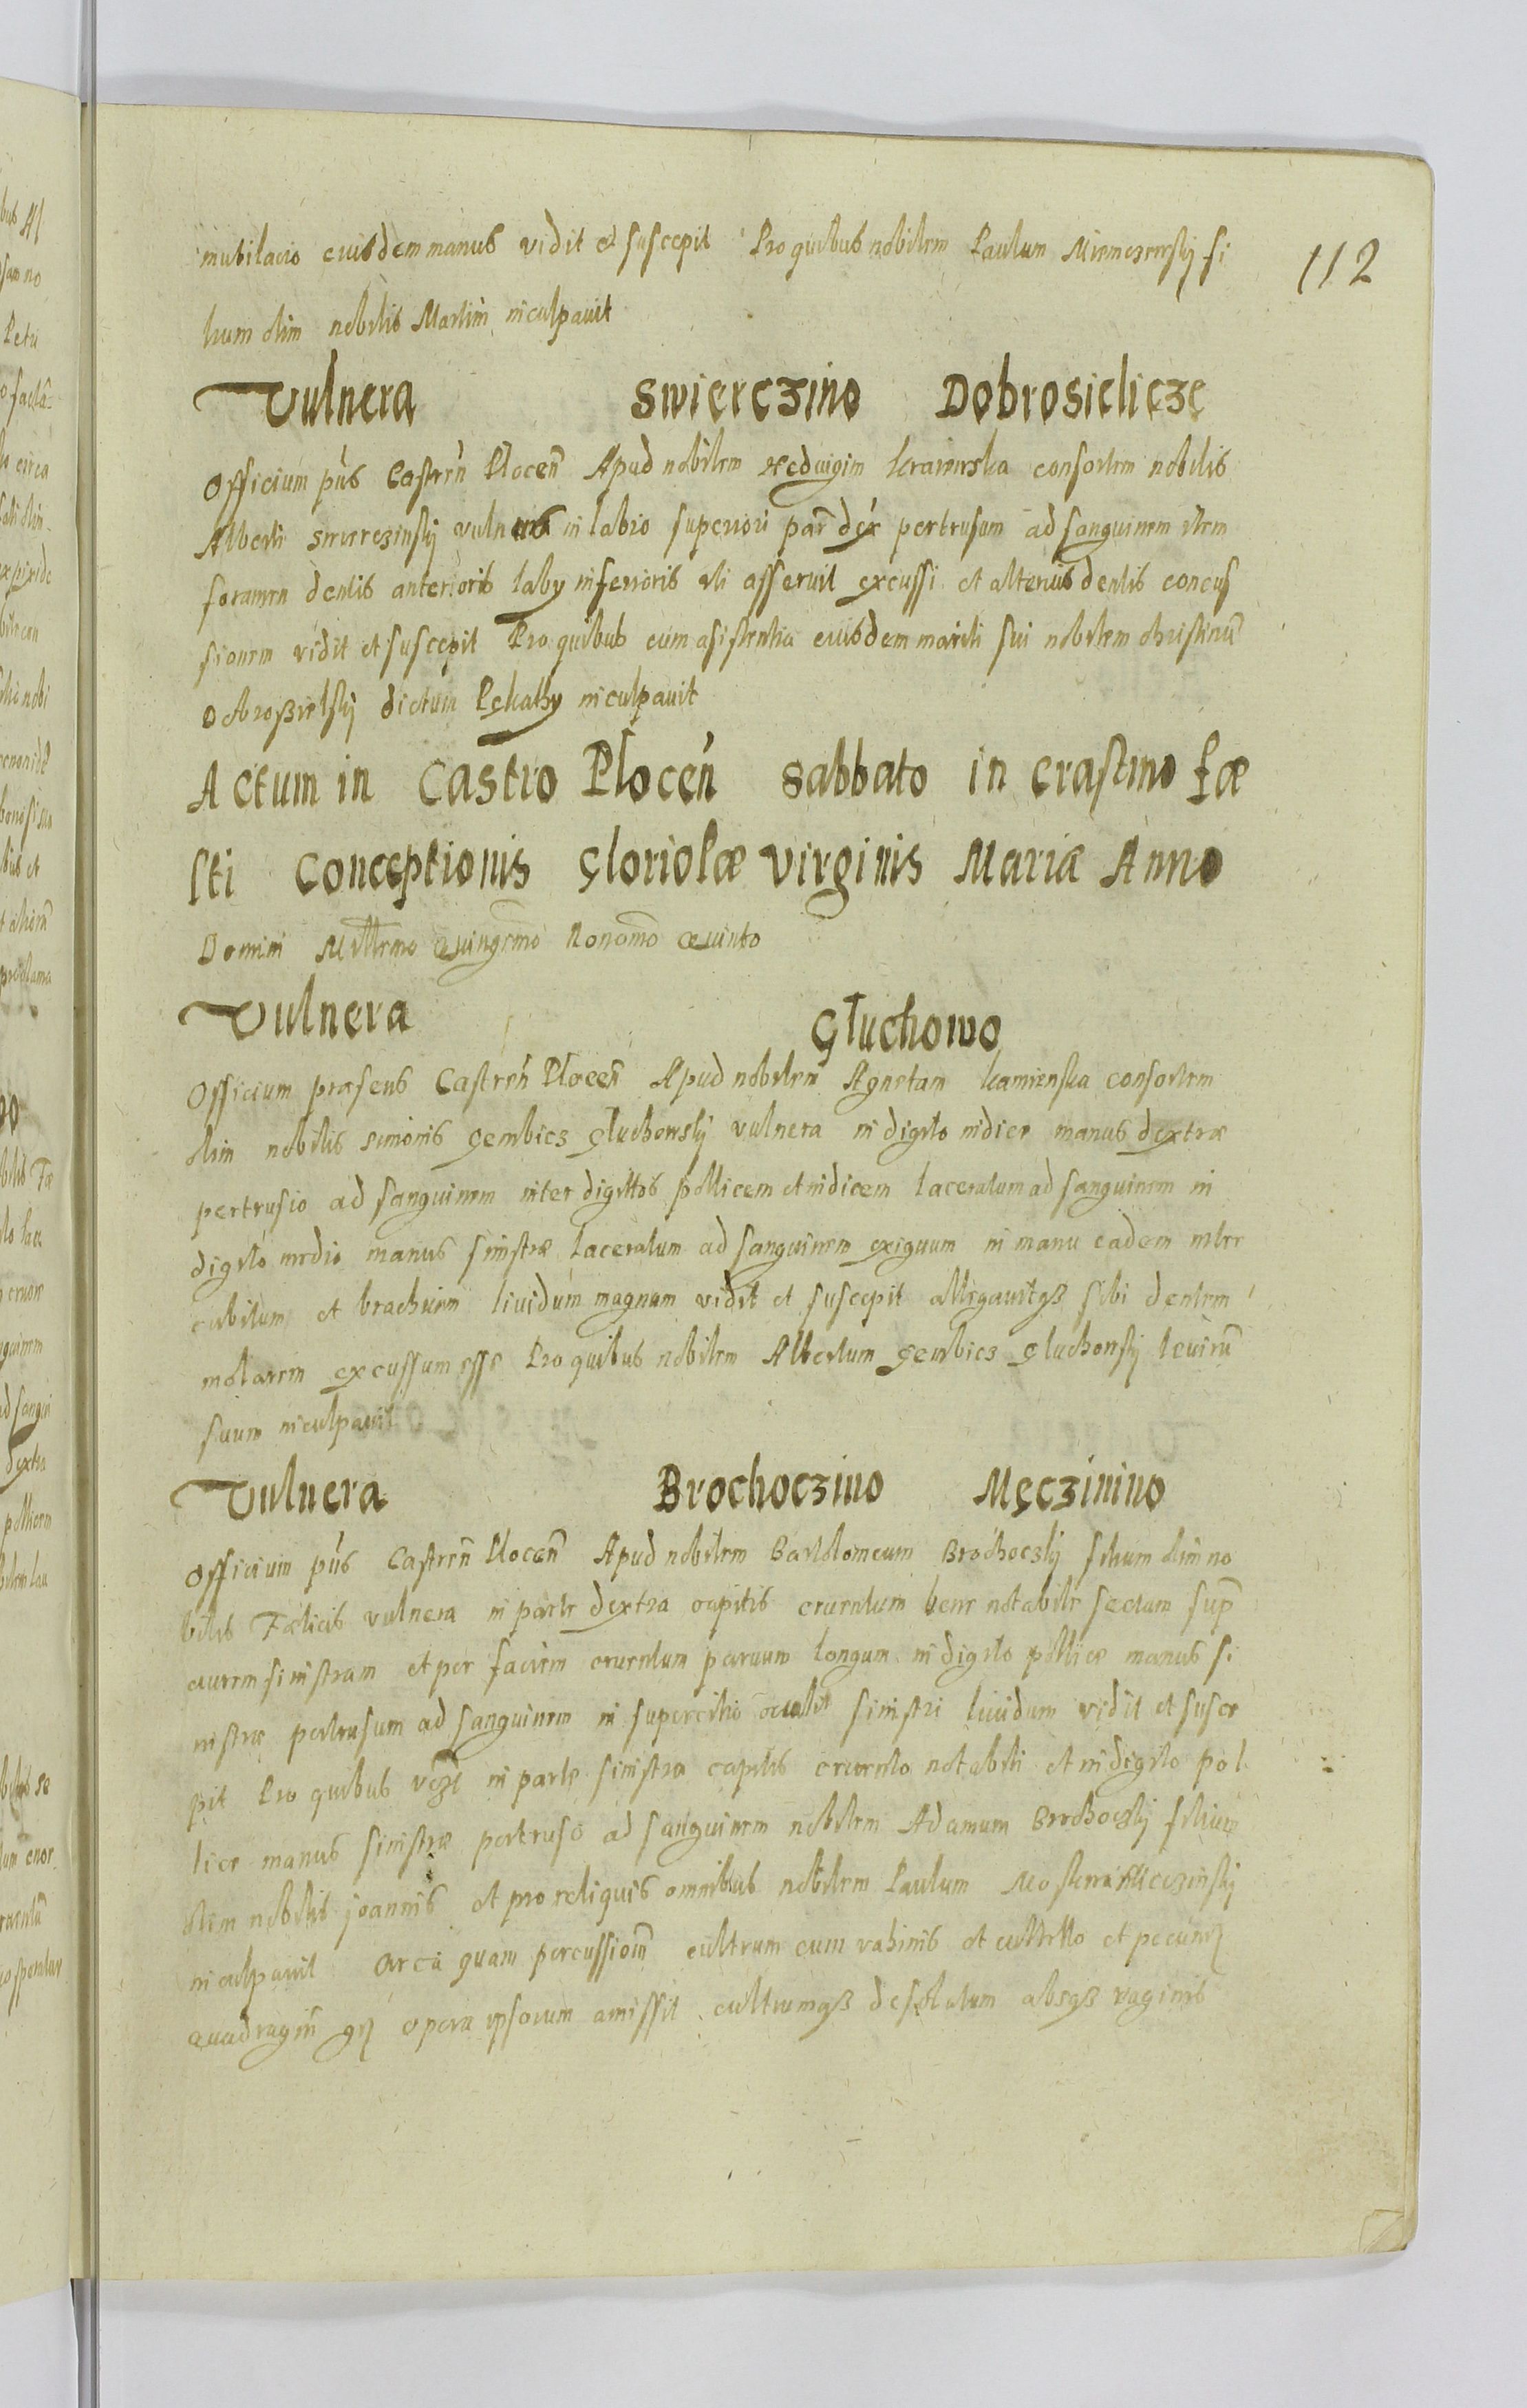 112
mutilacio eiusdem manus vidit et suscepit Pro quibus nobilem Paulum Niemczewskj fi
lium olim nobilis Martini inculpavit
Vulnera Swierczino Dobrosielicze
Officium pñs Castreñ Ploceñ Apud nobilem Hedwigim consortem nobilis
Alberti Swierczinskj vulnus in labio superiori par dex pertrusum ad sanguinem item
foramen dentis anterioris laby inferioris uti asseruit excussi et alterius dentis concus
sionem vidit et suscepit Pro quibus cum asistentia eiusdem mariti sui nobilem christinũ
dictum Pękathy inculpavit
Actum in Castro Ploceñ Sabbato in crastino fæ
sti Conceptionis Gloriosæ virginis Mariæ Anno
Domini Millemo Quingemo Nonomo Quinto
Vulnera Głuchowo
Officium præsens Castreñ Plocen Apud nobilem Agnetam kamienska consortem
olim nobilis simonis Gembicz Gluchowskj vulnera in digito indice manus dextræ
pertrusio ad sanguinem inter digittos pollicem et indicem laceratum ad sanguinem in
digito medio manus sinistræ laceratum ad sanguinem exiguum in manu eadem inter
cubitum et brachium lividum magnum vidit et suscepit allegavitqз sibi dentem
molarem excussum esse Pro quibus nobilem Albertum Gembicz Gluchowskj levirũ
suum inculpavit
Vulnera Brochoczino Męczinino
Officium pñs Castreñ Plocen Apud nobilem Bartolomeum Brochoczkj filium olim no
bilis Fœlicis vulnera in parte dextra capitis cruentum bene notabile sectum sup
aurem sinistram et per faciem cruentum parvum longum in digito pollice manus si
nistræ pertrusum ad sanguinem in supercilio oculi sinistri lividum vidit et susce
pit Pro quibus in parte sinistra capitis cruento notabili et in digito pol
lice manus sinistræ pertruso ad sanguinem nobilem Adamum Brochoczkj filium
olim nobilis joannis et pro reliquis omnibus nobilem Paulum Męczinskj
inculpavit Circa quam percussionem cultrum cum vahinis et cultello et pecuniỹ
quadragin gr opera ipsorum amissit cultrumqз desolatum absqз vaginis